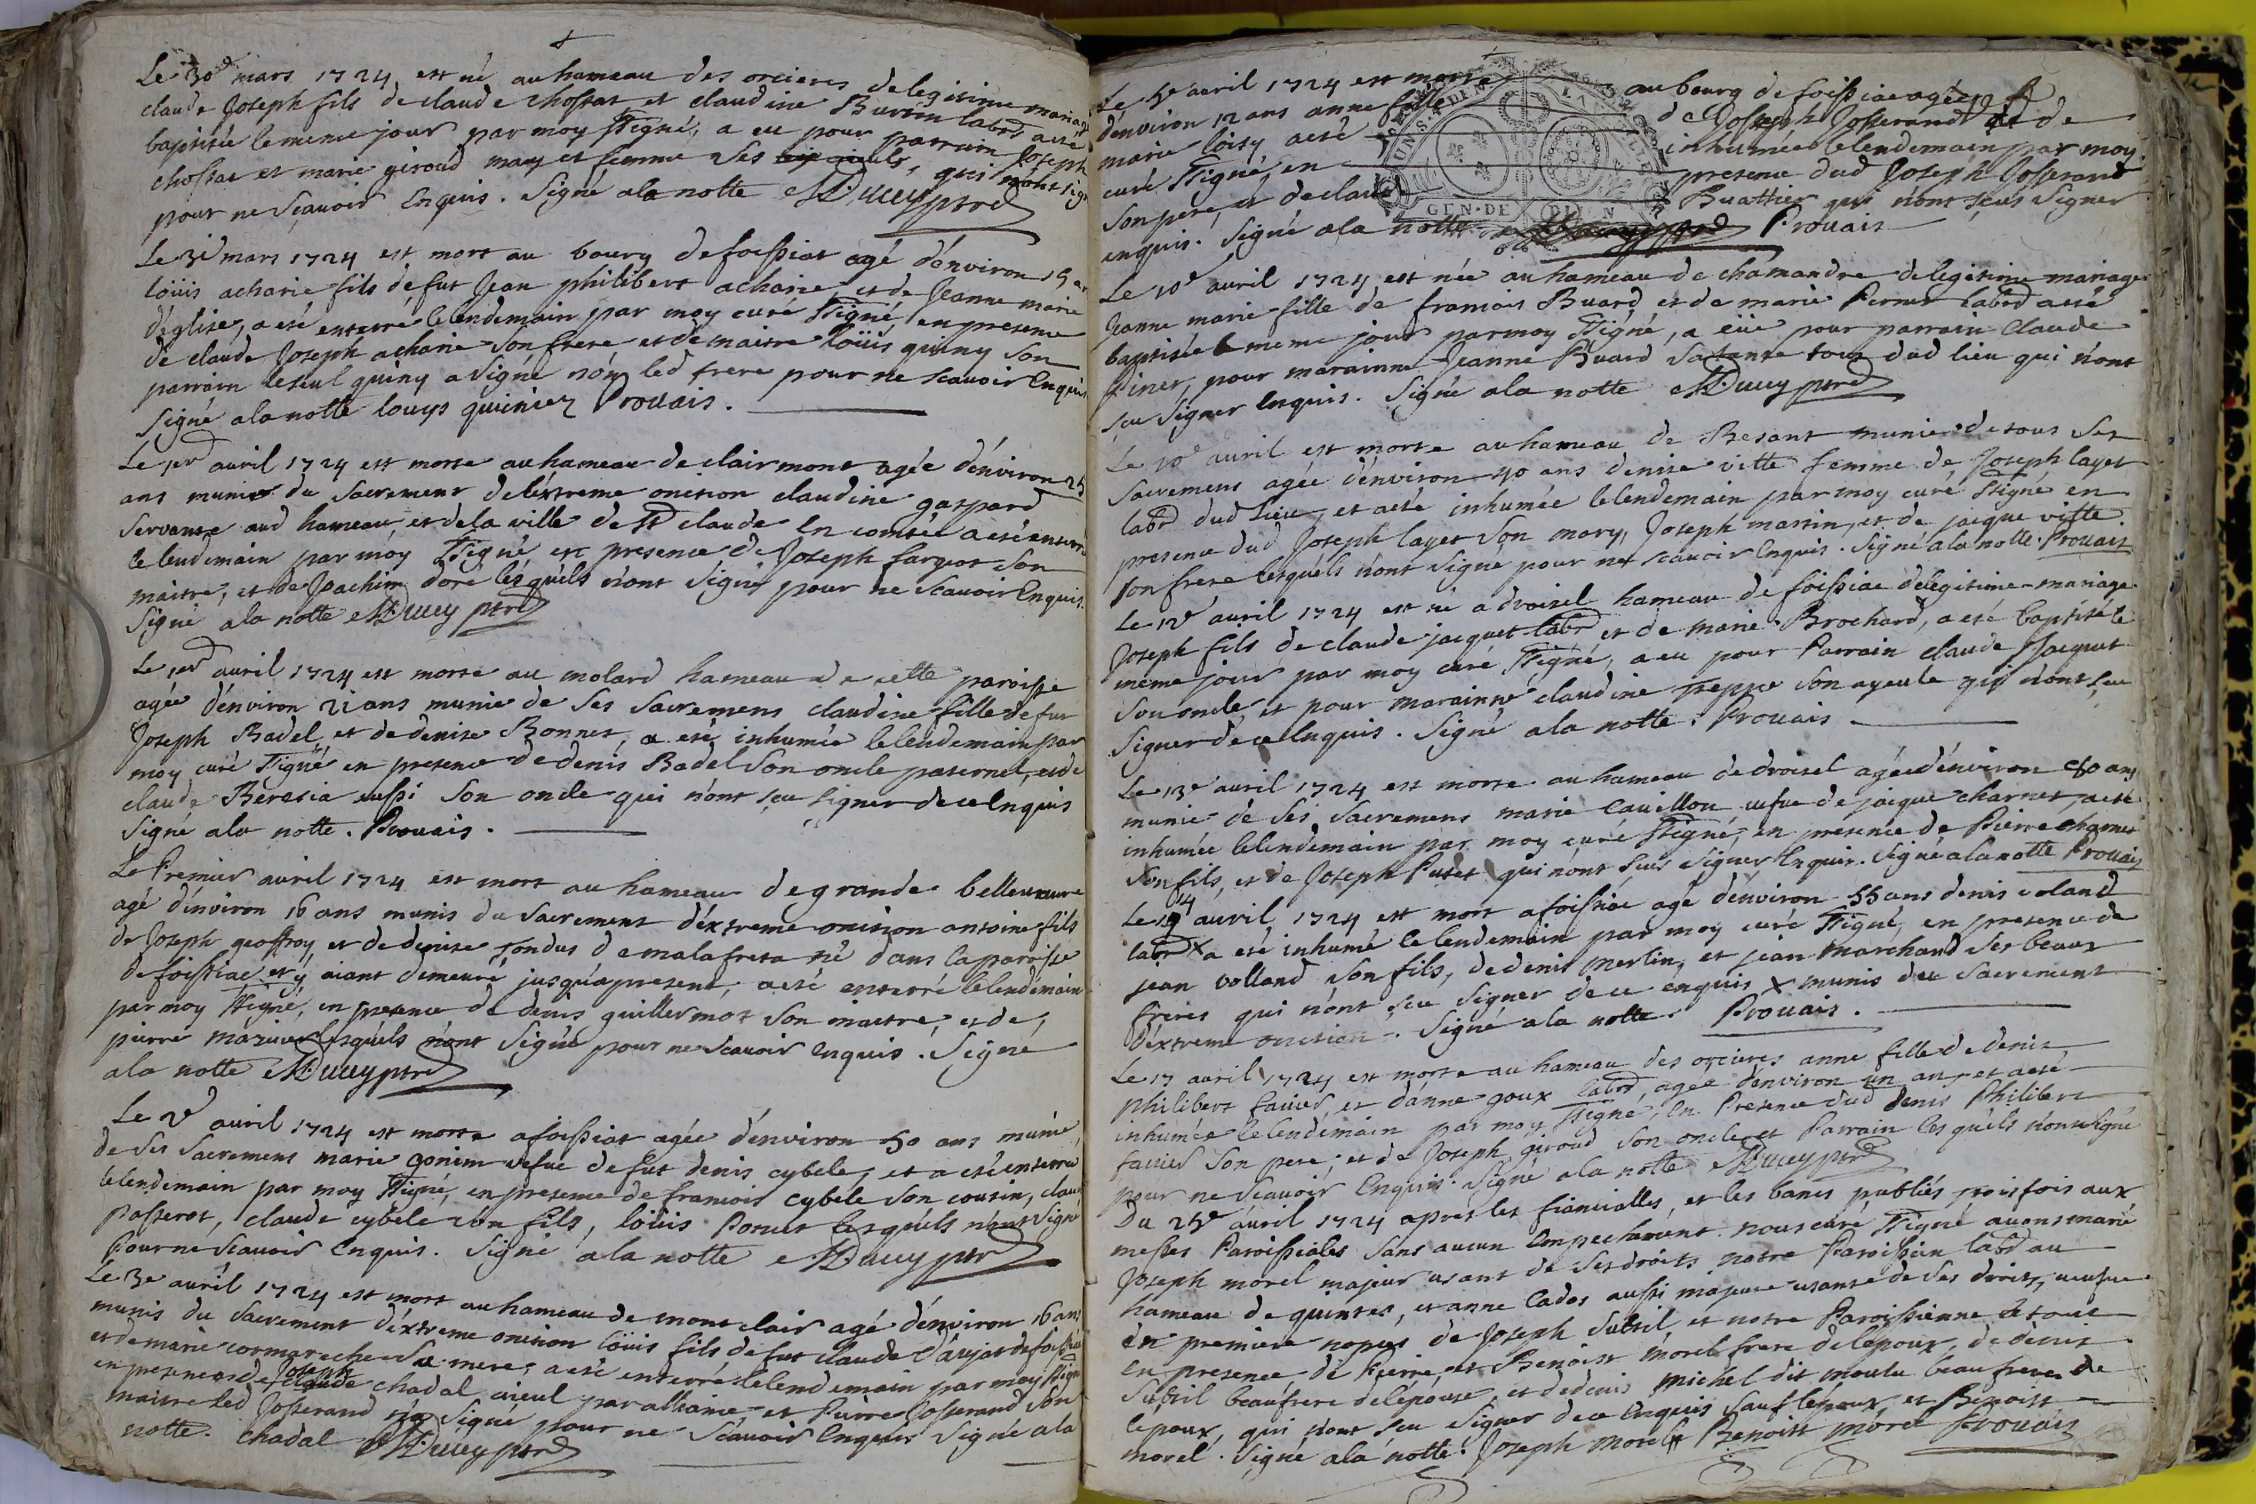 Le 30e mars 1724 est né au hameau des orcieres delegitime mariage
claude Joseph fils de claude chossat et claudine Burtin labr a eté
baptisée lememe jour par moy ssigné, a eu pour parrain Joseph
chossat et marie giroud mary et femme ses qui n'ont sig
pour ne sçavoir Enquis. Signé ala notte M: Ducuy ptre
Le 31e mars 1724 est mort au bourg defoissiat agé d'environ 15 an
loüis acharie fils défut Jean philibert acharie et de Jeanne marie
d'église, a eté enterré lelendemain par moy curé ssigné en presence
de claude Joseph acharie son frere et de maitre loüis quiny son
parrain leseul quiny a signé nón led frere pour ne scauoir Enquis
signé ala notte louys quiniez Prouais.
Le 1er auril 1724 est morte au hameau de clairmont agée d'énviron 25
ans munie du sacrement deléxtreme onction claudine gaspard
servante aud hameau, et dela ville de st claude En comtée a eté enterré
le lendemain par móy ssigné en presence de Joseph fargeot son
maitre, et de Joachim doré lésquéls n'ont signés pour ne scauoir Enquis.
signé ala notte M: Ducuy ptre
Le 1er auril 1724 est morte au molard hameau de cette paroisse
agée d'énviron 21 ans munie de ses sacremens claudine fille defut
Joseph Badel et de denise Bonnet, a eté inhumée lelendemain par
moy curé ssigné en presence de denis Badel son oncle paternel, et de
claude Beresia aussi son oncle qui n'ont sçeu signer de ce Enquis
signé ala notte. Prouais.
Le Premier auril 1724 est mort au hameau degrande belleuaure
agé d'énviron 16 ans munis du sacrement d'éxtreme onction antoine fils
de Joseph geoffroy et de denise fondus demalafreta né dans laparoisse
defoissiac et ý aiant demeuré jusqu'apresent, a eté enterré lelendemain
par moy ssigné, en presence de denis guillermot son maitre, et de,
pierre lesquéls n'ont signé pour ne scauoir enquis. Signé
ala notte M: Ducuy ptre
Le 2e auril 1724 est morte afoissiat agée d'énviron 50 ans munie
de ses sacremens marie gonin vefue defut denis cybele, et a eté enterré
lelendemain par moy ssigné, en presence de francois cybele son cousin, claude
passerat, claude cybele són fils, loüis Pornet lesquéls n'ont signé
Pour ne scauoir Enquis. Signé a la notte M: Ducuy ptre
Le 3e auril 1724 est mort au hameau de mont clair agé d'énviron 16 ans
munis du sacrement d'éxtreme onction loüis fils defut claude defoissiat
et de marie cormareche sa mere, a eté enterré lelendemain par moy ssigné
en presence de Joseph chadal aieul par alliance et Pierre Josserand són
maitre led Josserand n'a signé pour ne scauoir Enquis signé ala
notte. chadal M: Ducuy ptre
Le 5e auril 1724 est morte au bourg de foissiac agée
d'énviron 12 ans anne fille de Joseph Josserand et de
marie loisy a eté inhumée lelendemain par moy
curé ssigné, en presence dud Joseph Josserand
son pere, et de claude Buathier qui n'ont sçeus signer
enquis. Signé ala notte Prouais
GEN·DE DIION
Le 10e auril 1724 est née au hameau de chamandre delegitime mariage
Jeanne marie fille de francois Buard et de marie Pernet labrd a eté
baptisée le meme jour par moy ssigné, a eüe pour parrain claude
Piner, pour marainne Jeanne Buard sa tante tous dud lieu qui n'ont
sçu signer Enquis. Signé ala notte M: Ducuy ptre
Le 10e auril est morte au hameau de Besant munie de tous ses
sacremens agée d'énviron 40 ans denise vitte femme de Joseph layet
labrd dud Lieu, et a eté inhumée lelendemain par moy curé ssigné en
presence dud Joseph layet són mary, Joseph martin, et de jacque vitte
son frere lesquels n'ont signé pour ne scauoir Enquis. signé ala notte. Prouais
Le 12e auril 1724 est né a droisel hameau de foissiac delegitime mariage
Joseph fils de claude jacquet labrd et de marie Brochard, a eté baptisé le
meme jour par moy curé ssigné, a eu pour Parrain claude Jacquet
son oncle, et pour marainne claudine Treppoz son ayeule qui n'ont sçu
signer de ce Enquis. Signé ala notte. Prouais
Le 13e auril 1724 est morte au hameau de droisel agée d'énviron ans
munie de ses sacremens marie Cauillon uefue de jacque charnet, a eté
inhumée lelendemain par moy curé ssigné, en presence de Pierre charnet
són fils, et de Joseph Putet qui n'ont sceus signer Enquis. Signé ala notte Prouais
Le 14 auril 1724 est mort a foissiac agé d'énviron 55 ans denis voland
labrd x a eté inhumé lelendemain par moy curé ssigné, en presence de
jean volland són fils, de denis merlin, et jean marchand ses beaux
freres qui n'ont sceu signer de ce enquis x munis du sacrement
d'éxtreme onction. Signé ala notte. Prouais.
Le 17 auril 1724 est morte au hameau des orcieres anne fille de denis
philibert fauier, et d'anne goux labrd agée d'énviron un an, et a eté
inhumée lelendemain par moy ssigné, En Presence dud denis Philibert
fauier son pere, et de Joseph giroud son oncle et Parrain lesquéls n'ont signé
pour ne scauoir Enquis. Signé a la notte M: Ducuy ptre
Du 25e auril 1724 apres les fiancialles, et les bancs publiés trois fois aux
messes Paroissiales sans aucun Empechement nous curé ssigné auons marié
Joseph morel majeur usant de ses droits notre Paroissien labrd au
hameau de quintes, et anne Cados aussi majeure usante de ses droits, ueufue
en premiere nopces de Joseph subtil et notre Paroissienne le tout
en presence de Pierre, et Benoist morel frere delépoux, de denis
subtil beaufrere delépouse, et dedenis michel dit moulu beau frere de
lepoux, qui n'ont sçu signer de ce Enquis sauf lépoux, et Benoist
morel. Signé ala notte. Joseph morel Benoist morel Prouais